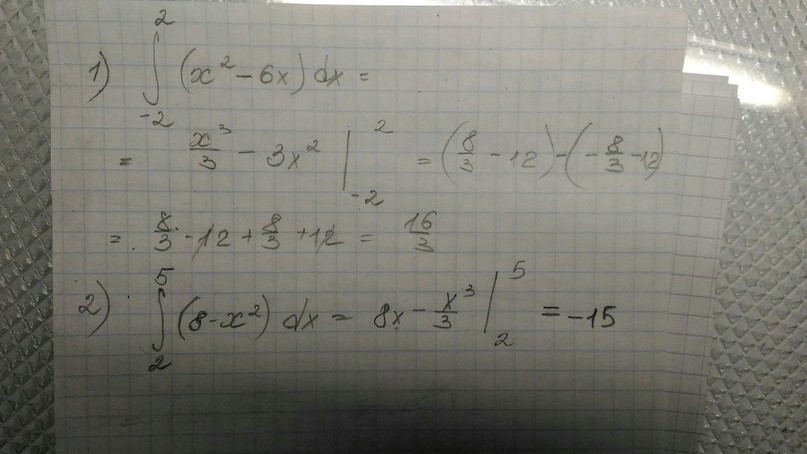 1) ∫_{-2}^{2} (x² - 6x) dx =
= x³/3 - 3x² |_{-2}^{2} = (8/3 - 12) - (-8/3 - 12)
= 8/3 - 12 + 8/3 + 12 = 16/3
2) ∫_{2}^{5} (8 - x²) dx = 8x - x³/3 |_{2}^{5} = -15